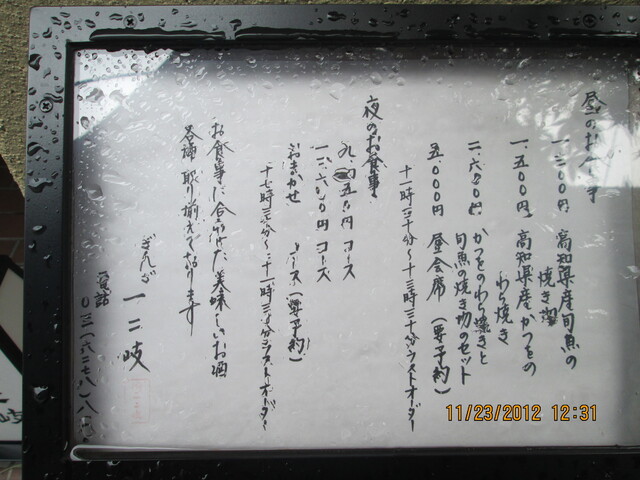 昼のお食事
一、二〇〇円 高知県産旬魚の
焼き物
一、五〇〇円 高知県産かつをの
わら焼き
二、六〇〇円 かつをのわら焼きと
旬魚の焼き物のセット
五、〇〇〇円 昼会席 (要予約)
十一時三十分〜十三時三十分ラストオーダー
夜のお食事
五〇円 コース
一二、六〇〇円 コース
おまかせ コース (要予約)
十七時三十分〜二十一時三十分ラストオーダー
お食事に合わせた美味しいお酒
各種取り揃えております
ぎんざ 一二岐
電話
11/23/2012 12:31